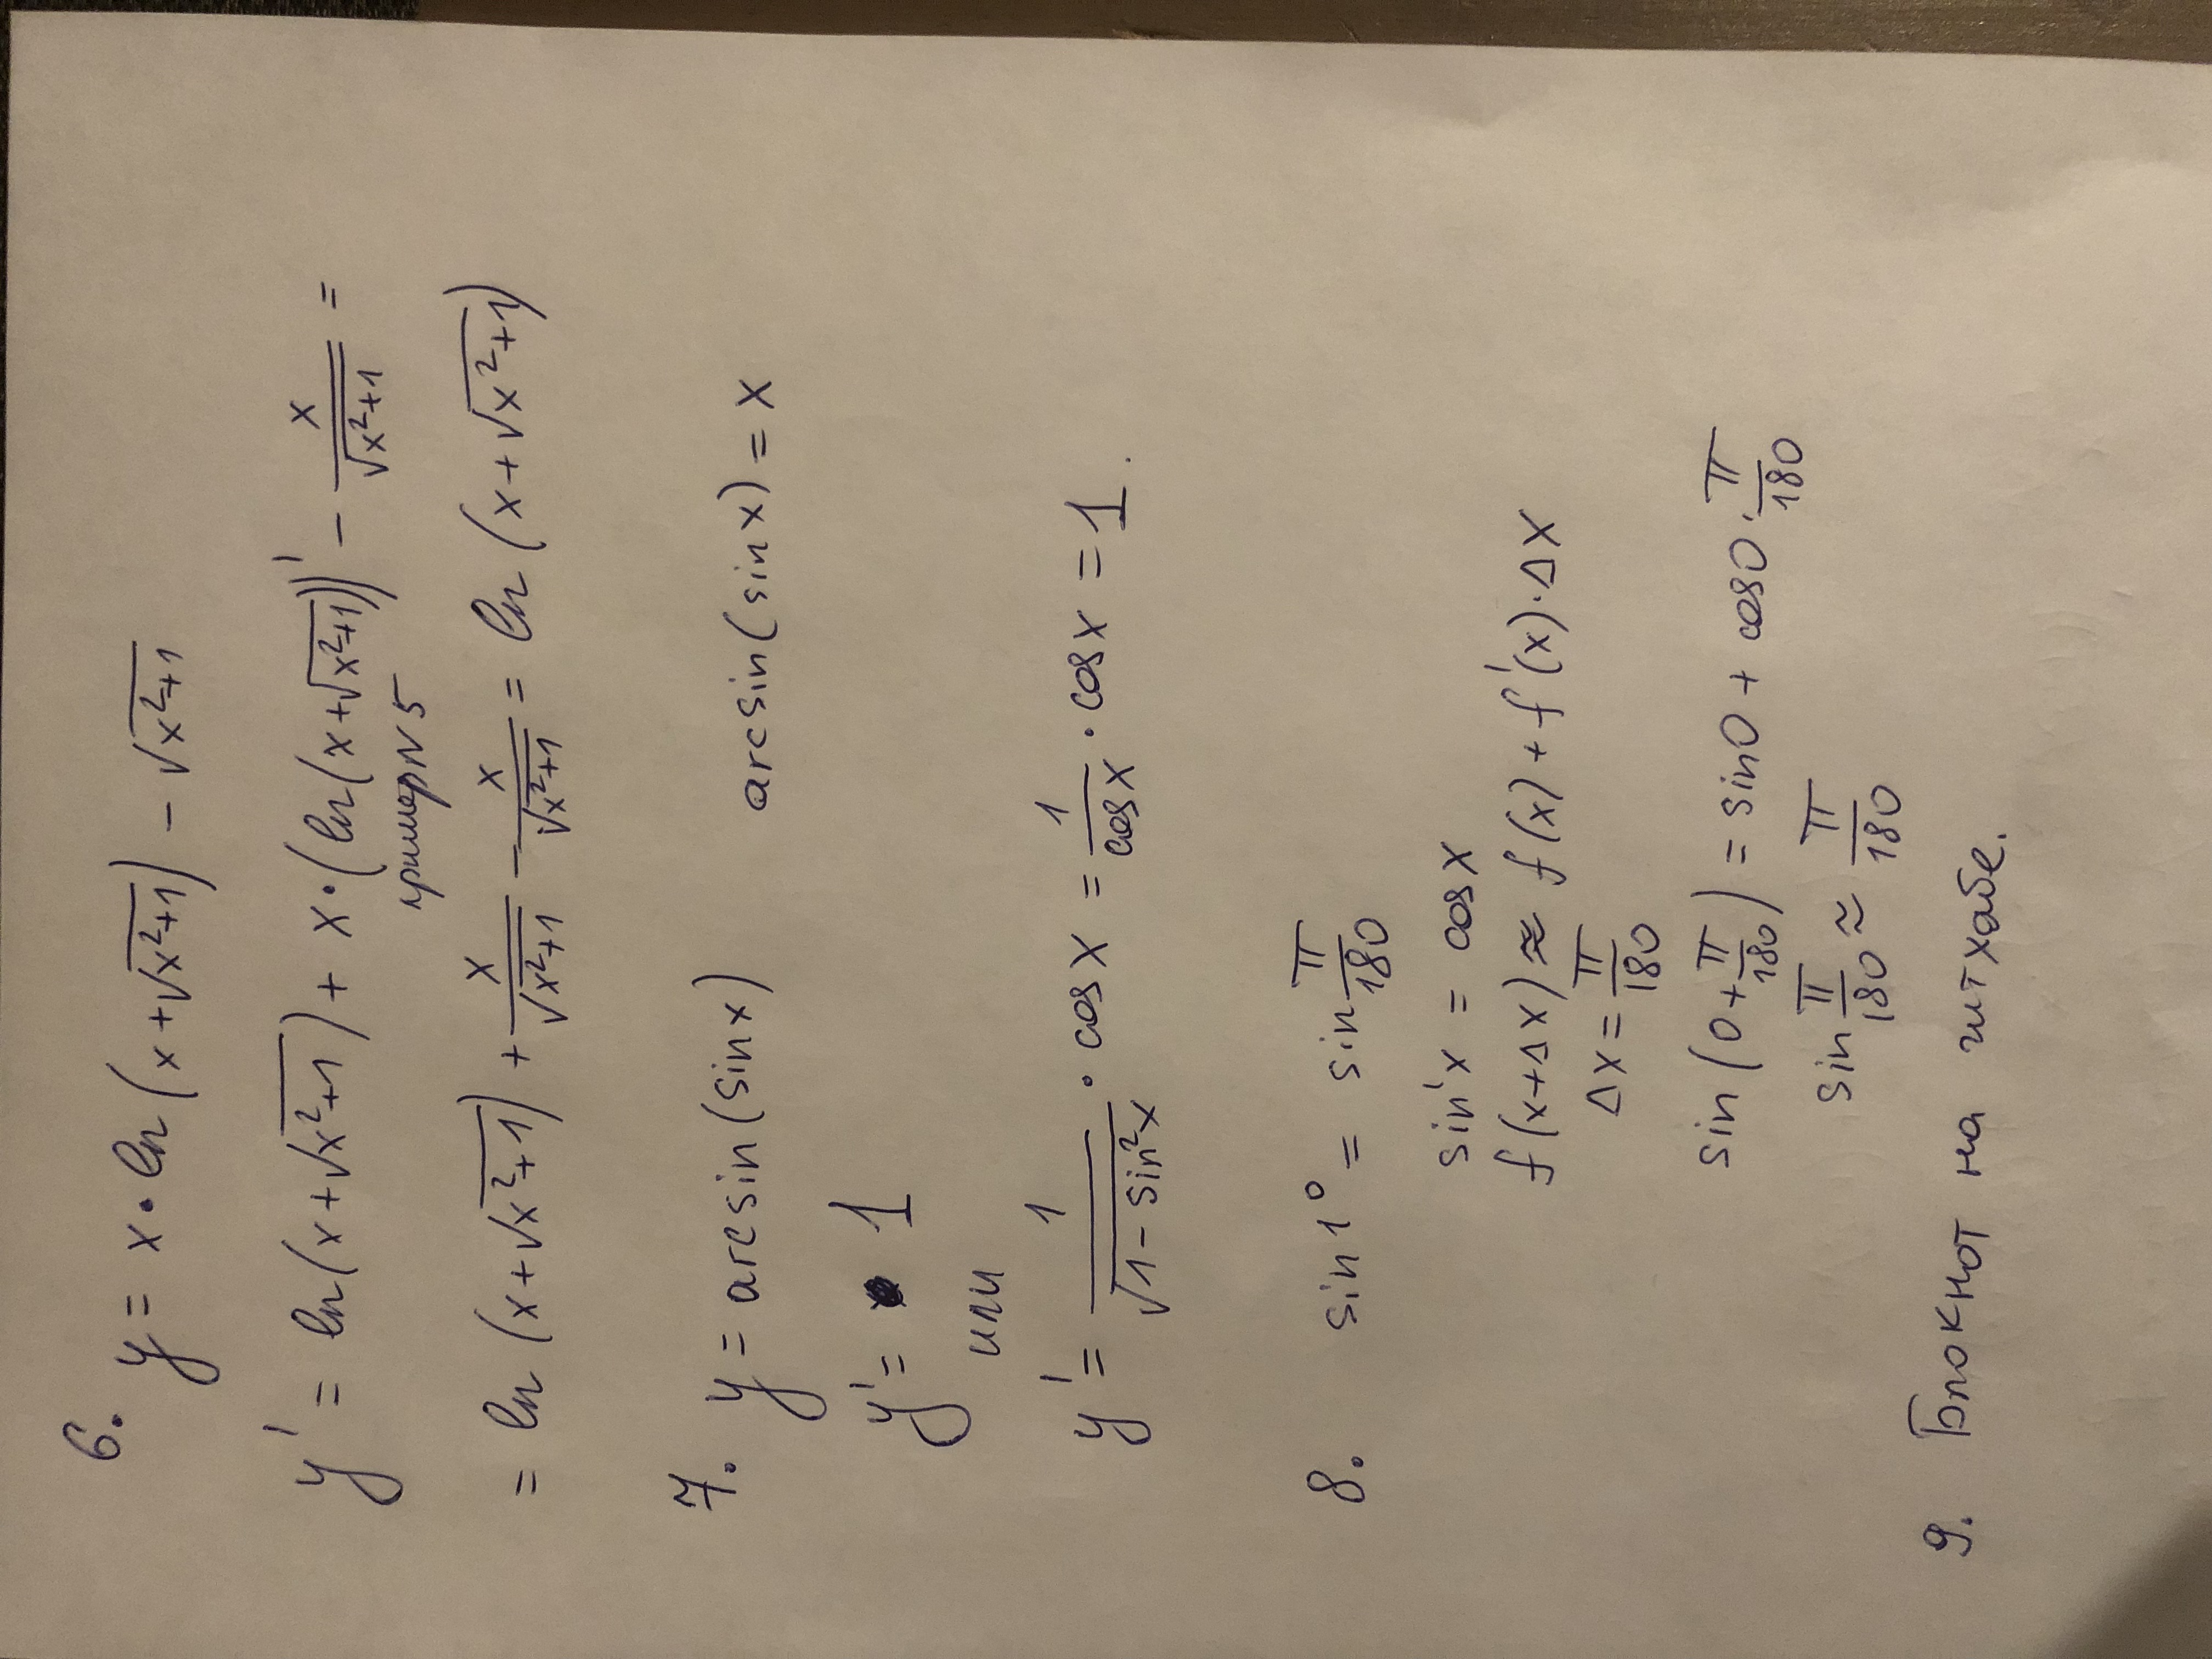 6.
y = x · ln (x + √(x²+1)) − √(x²+1)
y' = ln(x + √(x²+1)) + x · (ln(x + √(x²+1)))' − x/√(x²+1) =
пример N 5
= ln (x + √(x²+1)) + x/√(x²+1) − x/√(x²+1) = ln (x + √(x²+1))
7. y = arcsin(sin x) arcsin(sin x) = x
y' = 1
или
y' = 1/√(1 − sin²x) · cos x = 1/cos x · cos x = 1.
8. sin 1° = sin π/180
sin'x = cos x
f(x+Δx) ≈ f(x) + f'(x)·Δx
Δx = π/180
sin (0 + π/180) = sin 0 + cos 0 · π/180
sin π/180 ≈ π/180
9. Блокнот на гитхабе.